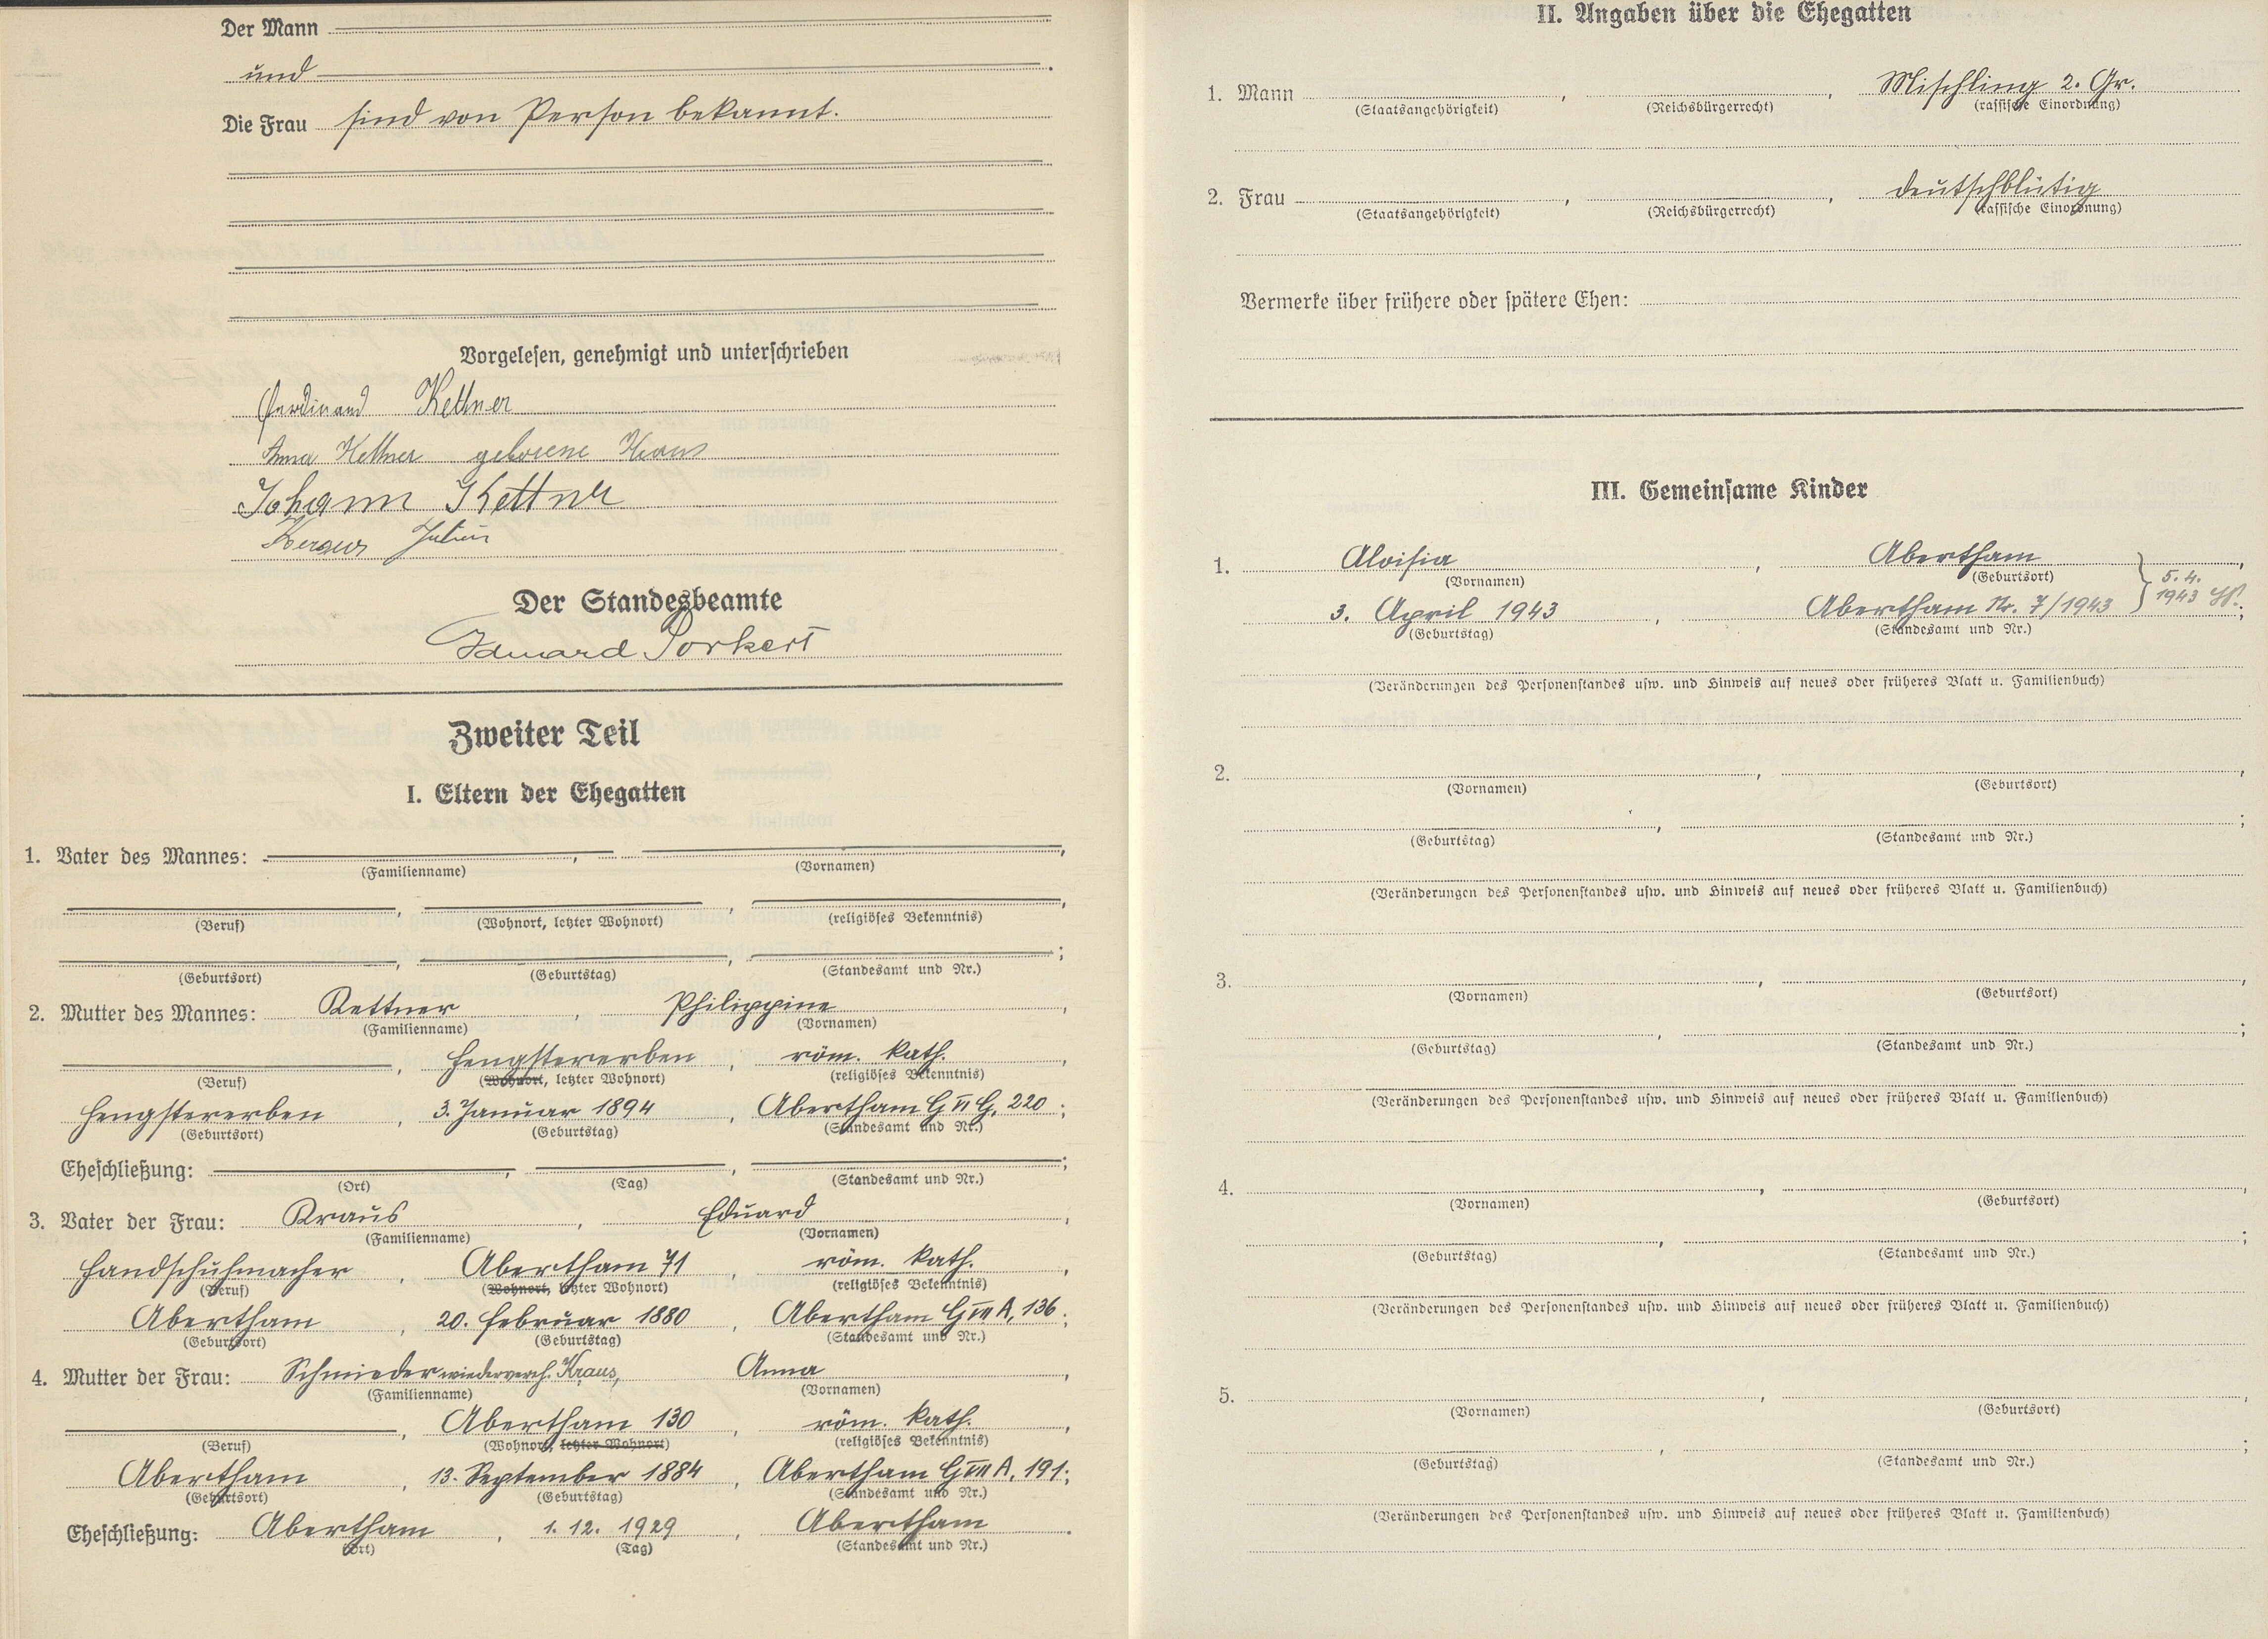 Der Mann
und
Die Frau sind von Person bekannt.
Vorgelesen, genehmigt und unterschrieben
Ferdinand Kettner
Anna Kettner geborene Kraus
Johann Kettner
Kraus Julius
Der Standesbeamte
Eduard Porkert
Zweiter Teil
I. Eltern der Ehegatten
1. Vater des Mannes: , ,
(Familienname) (Vornamen)
, , ,
(Beruf) (Wohnort, letzter Wohnort) (religiöses Bekenntnis)
, , ;
(Geburtsort) (Geburtstag) (Standesamt und Nr.)
2. Mutter des Mannes: Kettner , Philippine ,
(Familienname) (Vornamen)
, Hengstererben , röm. kath. ,
(Beruf) (Wohnort, letzter Wohnort) (religiöses Bekenntnis)
Hengstererben , 3. Januar 1894 , Abertham G VI G, 220 ;
(Geburtsort) (Geburtstag) (Standesamt und Nr.)
Eheschließung: , , ;
(Ort) (Tag) (Standesamt und Nr.)
3. Vater der Frau: Kraus , Eduard ,
(Familienname) (Vornamen)
Handschuhmacher , Abertham 71 , röm. kath. ,
(Beruf) (Wohnort, letzter Wohnort) (religiöses Bekenntnis)
Abertham , 20. Februar 1880 , Abertham G VII A, 136 ;
(Geburtsort) (Geburtstag) (Standesamt und Nr.)
4. Mutter der Frau: Schmieder wiederverh. Kraus, Anna ,
(Familienname) (Vornamen)
, Abertham 130 , röm. kath. ,
(Beruf) (Wohnort, letzter Wohnort) (religiöses Bekenntnis)
Abertham , 13. September 1884 , Abertham G VII A, 191 ;
(Geburtsort) (Geburtstag) (Standesamt und Nr.)
Eheschließung: Abertham , 1. 12. 1929 , Abertham .
(Ort) (Tag) (Standesamt und Nr.)
II. Angaben über die Ehegatten
1. Mann , , Mischling 2. Gr.
(Staatsangehörigkeit) (Reichsbürgerrecht) (rassische Einordnung)
2. Frau , , deutschblütig
(Staatsangehörigkeit) (Reichsbürgerrecht) (rassische Einordnung)
Vermerke über frühere oder spätere Ehen:
III. Gemeinsame Kinder
1. Aloisia , Abertham ,
(Vornamen) (Geburtsort) 5. 4.
3. April 1943 , Abertham Nr. 7/1943 } 1943 ;
(Geburtstag) (Standesamt und Nr.)
(Veränderungen des Personenstandes usw. und Hinweis auf neues oder früheres Blatt u. Familienbuch)
2. , ,
(Vornamen) (Geburtsort)
, ;
(Geburtstag) (Standesamt und Nr.)
(Veränderungen des Personenstandes usw. und Hinweis auf neues oder früheres Blatt u. Familienbuch)
3. , ,
(Vornamen) (Geburtsort)
, ;
(Geburtstag) (Standesamt und Nr.)
(Veränderungen des Personenstandes usw. und Hinweis auf neues oder früheres Blatt u. Familienbuch)
4. , ,
(Vornamen) (Geburtsort)
, ;
(Geburtstag) (Standesamt und Nr.)
(Veränderungen des Personenstandes usw. und Hinweis auf neues oder früheres Blatt u. Familienbuch)
5. , ,
(Vornamen) (Geburtsort)
, ;
(Geburtstag) (Standesamt und Nr.)
(Veränderungen des Personenstandes usw. und Hinweis auf neues oder früheres Blatt u. Familienbuch)